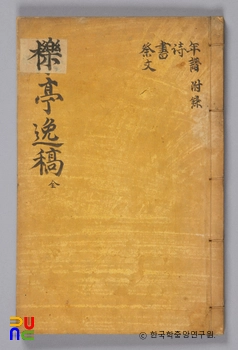 年譜 附錄
詩
書
祭文
櫟亭逸稿 全
© 한국학중앙연구원